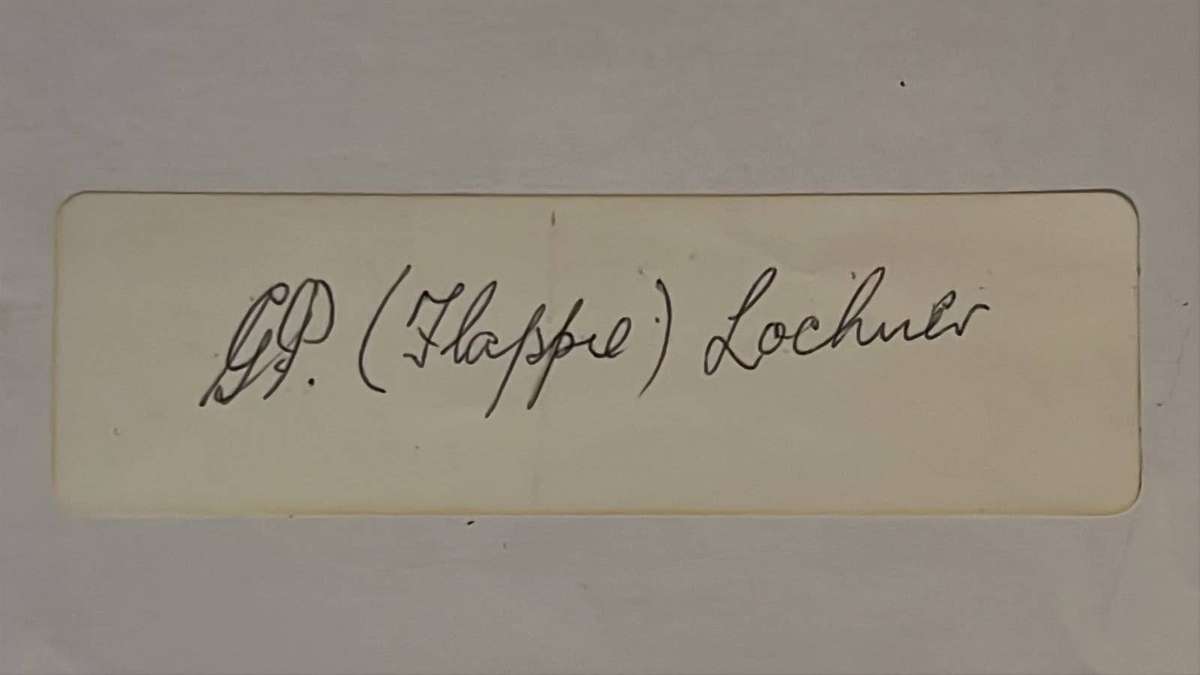 GP. (Flappie) Lochner